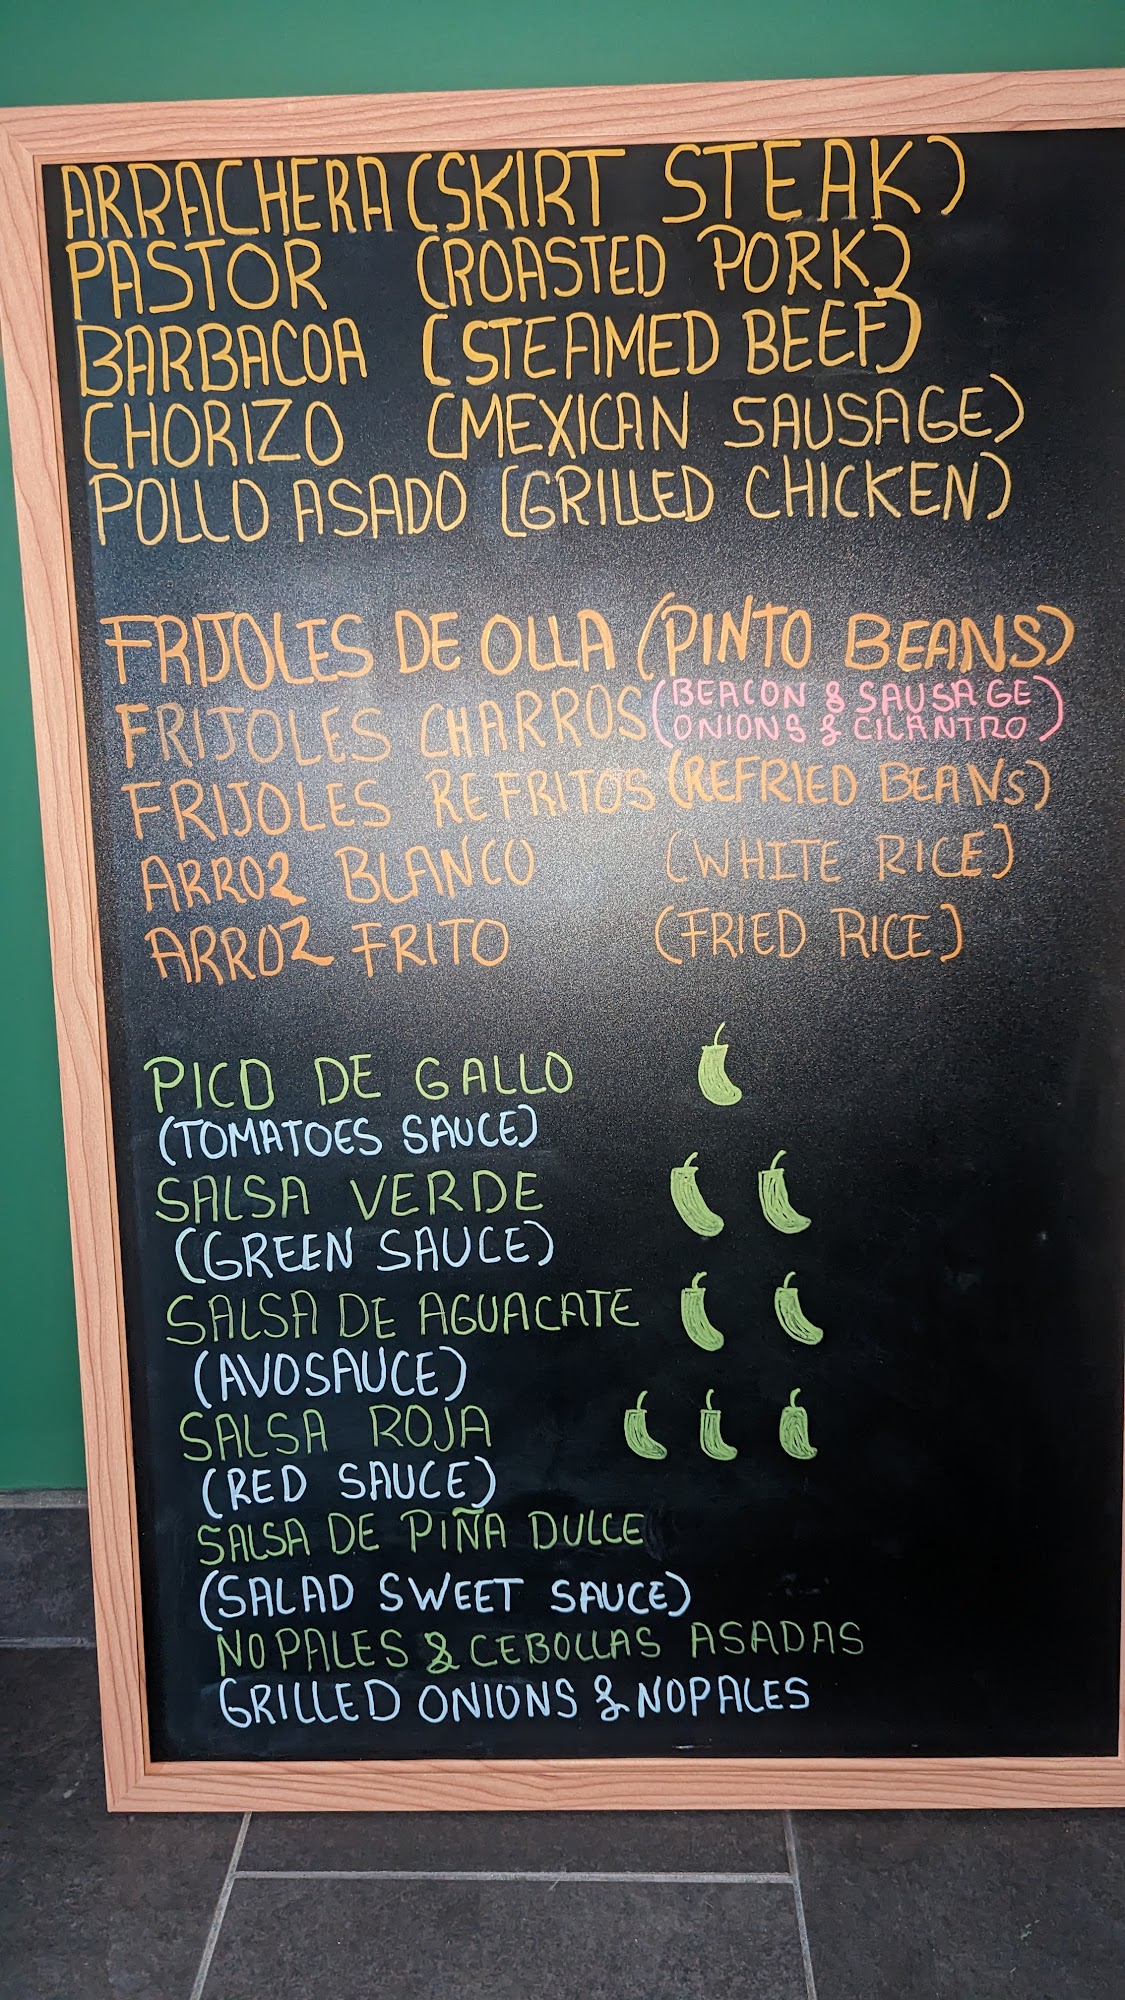 ARRACHERA (SKIRT STEAK)
PASTOR (ROASTED PORK)
BARBACOA (STEAMED BEEF)
CHORIZO (MEXICAN SAUSAGE)
POLLO ASADO (GRILLED CHICKEN)
FRIJOLES DE OLLA (PINTO BEANS)
FRIJOLES CHARROS (BEACON & SAUSAGE
ONIONS & CILANTRO)
FRIJOLES REFRITOS (REFRIED BEANS)
ARROZ BLANCO (WHITE RICE)
ARROZ FRITO (FRIED RICE)
PICO DE GALLO
(TOMATOES SAUCE)
SALSA VERDE
(GREEN SAUCE)
SALSA DE AGUACATE
(AVOSAUCE)
SALSA ROJA
(RED SAUCE)
SALSA DE PIÑA DULCE
(SALAD SWEET SAUCE)
NOPALES & CEBOLLAS ASADAS
GRILLED ONIONS & NOPALES